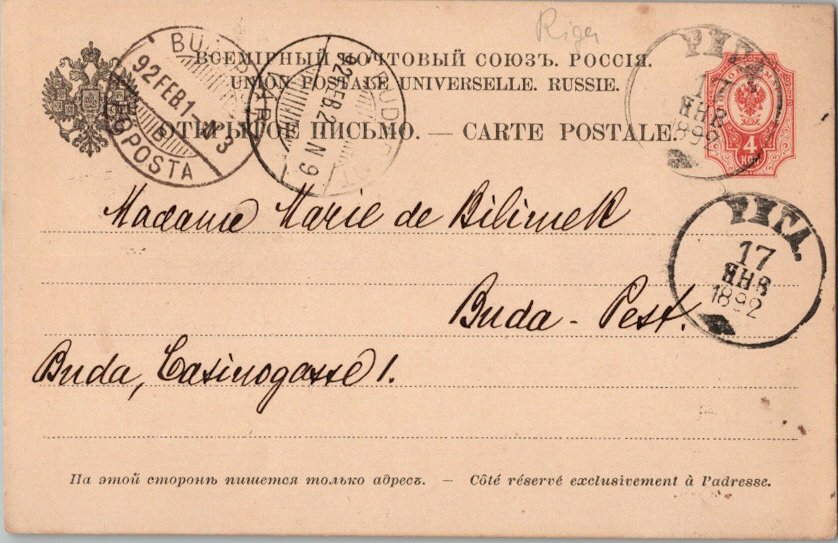 Riga
ВСЕМІРНЫЙ ПОЧТОВЫЙ СОЮЗЪ. РОССІЯ.
UNION POSTALE UNIVERSELLE. RUSSIE.
ОТКРЫТОЕ ПИСЬМО. — CARTE POSTALE.
92 FEB 1
92 FEB 2 N 9
РИГА
17
ЯНВ
1892
4
КОП
Madame Marie de Bilimek
РИГА.
17
ЯНВ
1892
Buda-Pest.
Buda, Casinogasse 1.
На этой сторонѣ пишется только адресъ. — Côté réservé exclusivement à l'adresse.